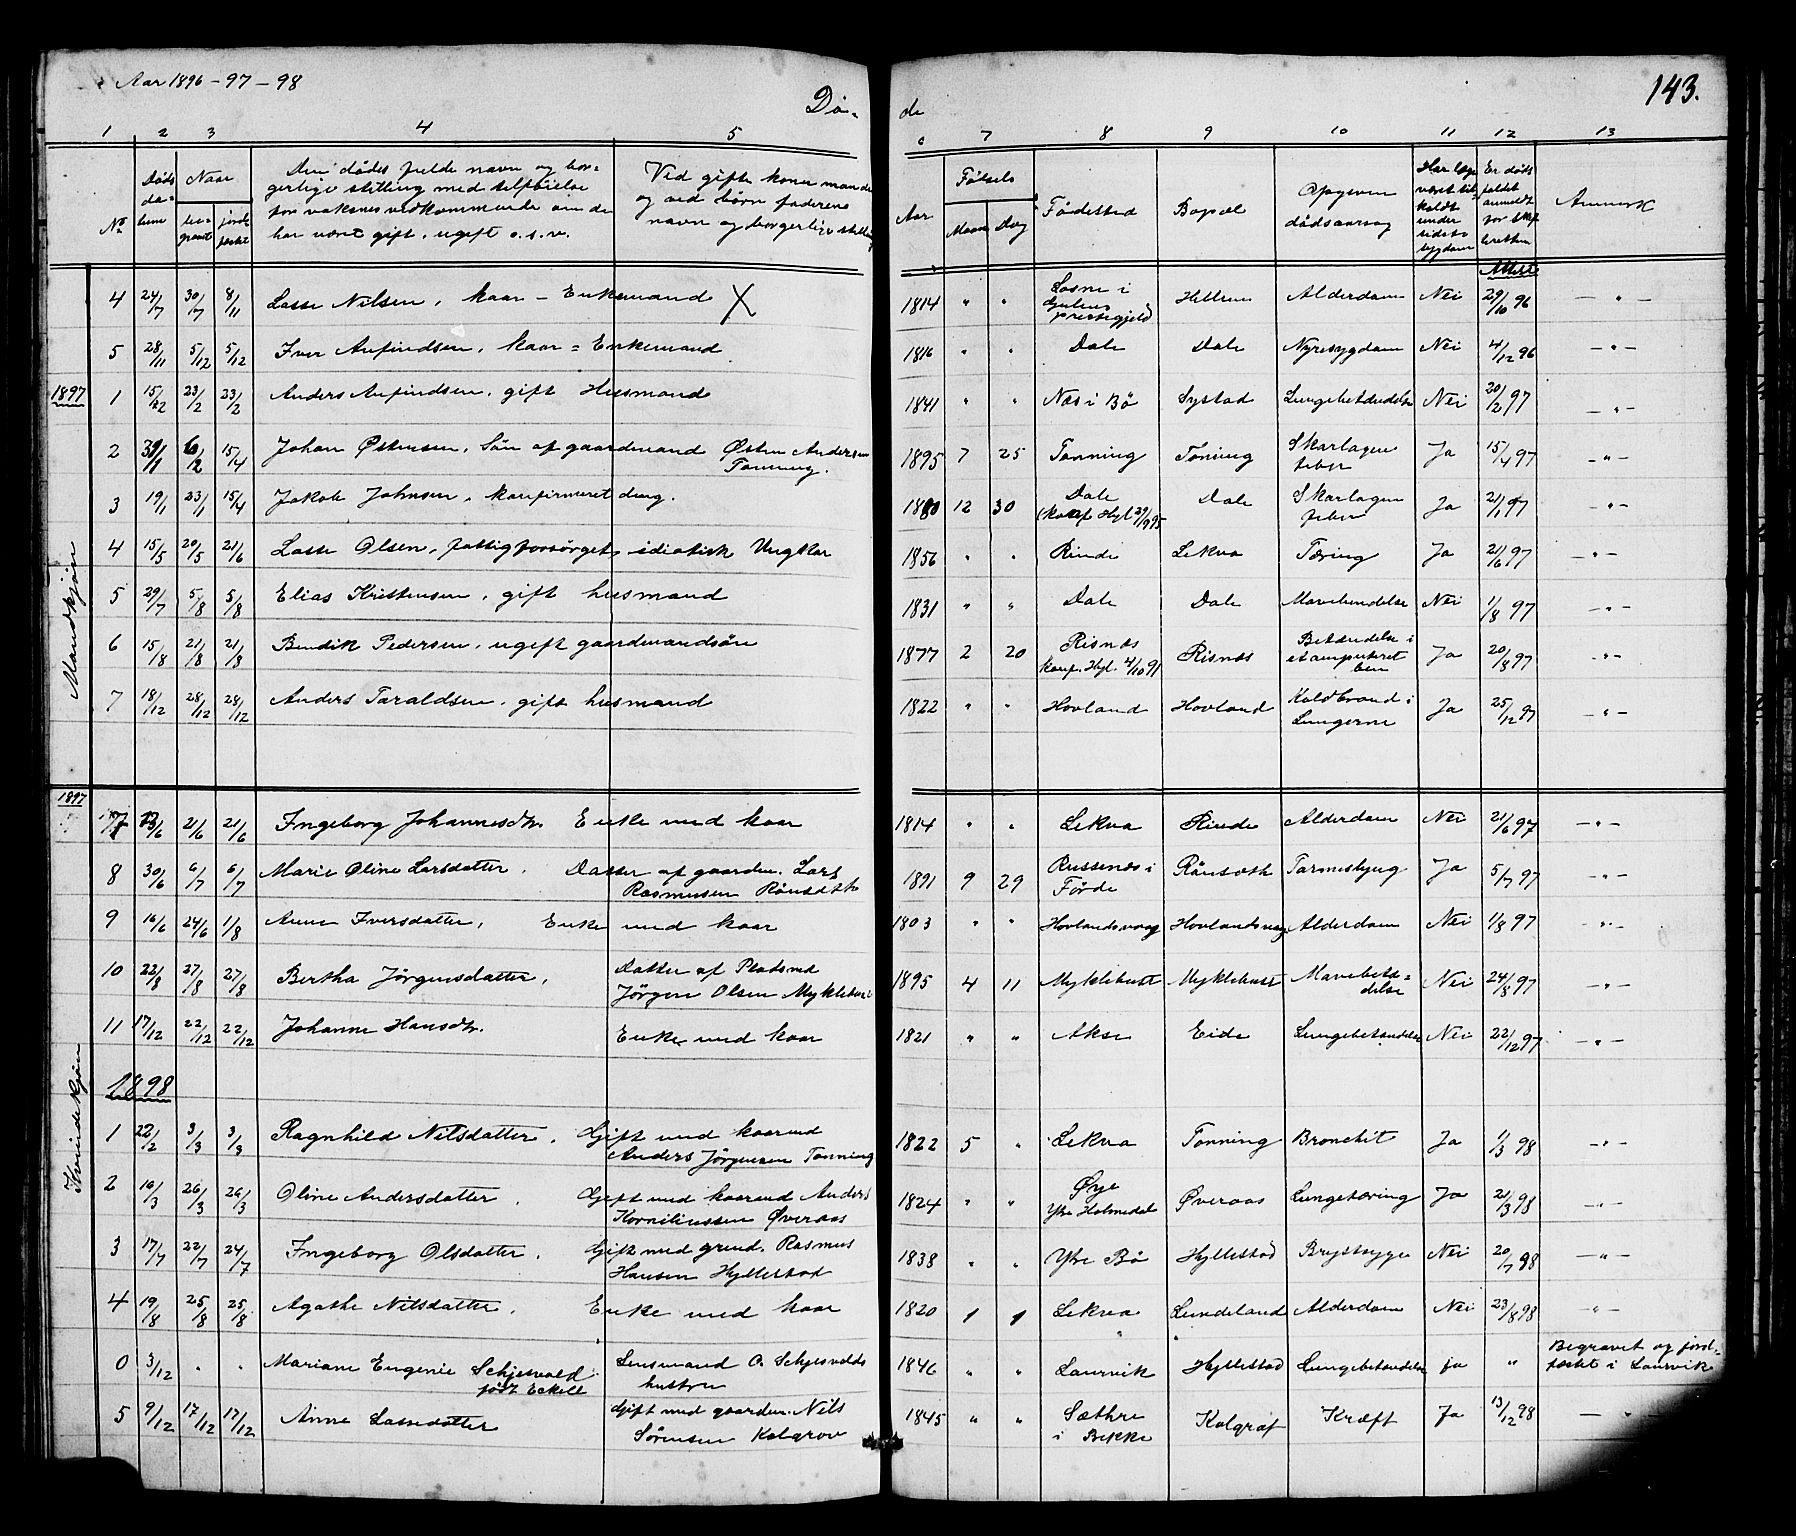 Aar 1896-97-98
Dö-
de
143.
1 2 3 4 5 6 7 8 9 10 11 12 13
No
Döds
da-
tum
Naar
be-
gravet
jord-
fæstet
Den dödes fulde navn og bor-
gerlige stilling med tilföielse
for voksnes vedkommende om de
har været gift, ugift o.s.v.
Ved gifte koner mandens
og ved børn faderens
navn og borgerlige stilling
Fötsels
Aar
Maaned
Dag
Födested
Bopæl
Opgiven
dödsaarsag
Har læge
været til-
kaldt
under
sidste
sygdom
Er döds
faldet
anmeldt
for skif-
teretten
Anmerk
Mandkjön
4 24/7 30/7 8/11 Lasse Nilsen, kaar-Enkemand X 1814 " " Losne i Gulens prestegjeld Hellem Alderdom Nei Attest 29/10 96 - " -
5 28/11 5/12 5/12 Iver Anfindsen, kaar=Enkemand 1816 " " Dale Dale Nyresygdom Nei 4/12 96 - " -
1897
1 15/2 23/2 23/2 Anders Anfindsen, gift Husmand 1841 " " Næs i Bö Systad Lungebetændelse Nei 20/2 97 - " -
2 30/1 6/2 15/4 Johan Östensen, Sön af gaardmand Östen Andersen Tonning. 1895 7 25 Tonning Tonning Skarlagensfeber Ja 15/4 97 - " -
3 19/1 23/1 15/4 Jakob Johnsen, konfirmeret dreng. 1880 12 30 Dale (konf. Hyl 29/9 95 Dale Skarlagensfeber Ja 21/1 97 - " -
4 15/5 20/5 21/6 Lasse Olsen, fattigforsörget, idiotisk Ungkar 1856 " " Rinde Lekva Tæring Ja 21/6 97 - " -
5 29/7 5/8 5/8 Elias Kristensen, gift husmand 1831 " " Dale Dale Mavebendelse Nei 1/8 97 - " -
6 15/8 21/8 21/8 Bendik Pedersen, ugift gaardmandsön 1877 2 20 Risnes konf. Hyl. 4/10 91 Risnæs Betændelse i et amputeret ben Ja 20/8 97 - " -
7 18/12 28/12 28/12 Anders Taraldsen, gift husmand 1822 " " Hovland Hovland Koldbrand i Lungerne Ja 25/12 97 - " -
1897
Kvindekjön
7 13/6 21/6 21/6 Ingeborg Johannesdtr. Enke med kaar 1814 " " Lekva Rinde Alderdom Nei 21/6 97 - " -
8 30/6 6/7 6/7 Marie Oline Larsdatter, Datter af gaardm. Lars Rasmusen Rönsdtt 1891 9 29 Russenes i Förde Rönsæth Tarmsbyug Ja 5/7 97 - " -
9 16/6 24/6 1/8 Anne Iversdatter, Enke med kaar 1803 " " Hovlandsvaag Hovlandsvaag Alderdom Nei 1/8 97 - " -
10 22/8 27/8 27/8 Bertha Jörgensdatter, Datter af Pladsmd Jörgen Olsen Myklebust 1895 4 11 Myklebust Myklebust Mavebetæ=delse Nei 24/8 97 - " -
11 17/12 22/12 22/12 Johanne Hansdtr. Enke med kaar 1821 " " Akse Eide Lungebetændelse Nei 22/12 97 - " -
1898
1 22/2 3/3 3/3 Ragnhild Nilsdatter, Gift med kaarmd Anders Jörgensen Tonning 1822 5 " Lekva Tonning Bronchit Ja 1/3 98 - " -
2 16/3 26/3 26/3 Oline Andersdatter, Gift med kaarmd Anders Korneliussen Överaas 1824 " " Öye Ytre Holmedal Överaas Lungetæring Ja 21/3 98 - " -
3 17/7 22/7 24/7 Ingeborg Olsdatter, Gift med grmd. Rasmus Hansen Hyllestad 1838 " " Ytre Bö Hyllestad Brystsyge Nei 20/7 98 - " -
4 19/8 25/8 25/8 Agathe Nilsdatter, Enke med kaar 1820 1 1 Lekva Lundeland Alderdom Nei 23/8 98 - " -
0 3/12 " " Mariane Eugenie Schjesvold födt Eckell Lensmand O. Schjesvolds hustru 1846 " " Laurvik Hyllestad Lungebetændelse ja " Begravet og jord-fæstet i Laurvik
5 9/12 17/12 17/12 Anne Lassedatter Gift med gaardm. Nils Sörensen Kolgrov 1845 " " Sæthre i Brekke Kolgrof Kræft Ja 13/12 98 - " -